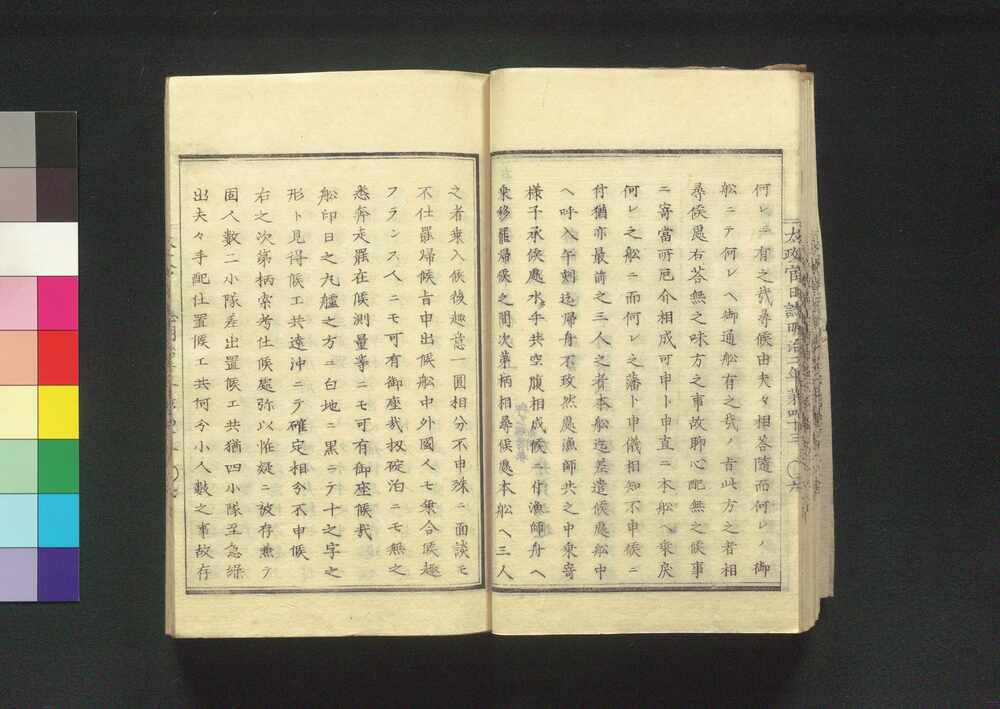 何レニ有之哉尋候由夫々相答隨而何レノ御
舩ニテ何レヘ御通舩有之哉ノ旨此方之者相
尋候処右答無之味方之事故聊心配無之候事
ニ寄當所厄介相成可申ト申直ニ本舩ヘ乗戻
何レ之舩ニ而何レ之藩ト申儀相知不申候ニ
付猶亦最前之三人之者本舩迄差遣候處舩中
ヘ呼入午刻迄歸舟不致然處漁師共之中乗寄
様子承候處水手共空腹相成候ニ付漁師舟ヘ
乗移罷歸候之間次第柄相尋候處本舩ヘ三人
太政官日誌明治二年第四十三
〇六
之者乗入候後趣意一圓相分不申殊ニ面談モ
不仕罷歸候旨申出候舩中外國人七乗合候趣
フランス人ニモ可有御座哉扨碇泊ニモ無之
悉奔走罷在候測量等ニモ可有御座候哉
舩印日之丸艫之方ニ白地ニ黒ニテ十之字之
形ト見得候エ共遠沖ニテ確定相分不申候
右之次第柄索考仕候處弥以怪疑ニ被存兼テ
固人數二小隊差出置候エ共猶四小隊至急繰
出夫々手配仕置候エ共何分小人數之事故存